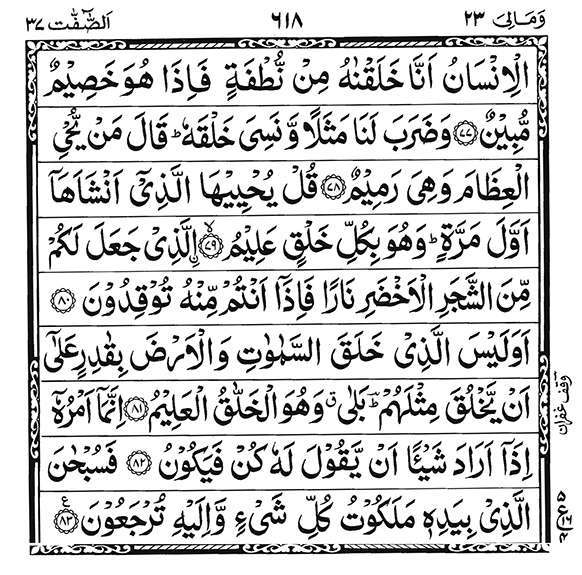 وَمَالِىَ ٢٣ ٦١٨ اَلصّٰٓفّٰت ٣٧
الْاِنْسَانُ اَنَّا خَلَقْنٰهُ مِنْ نُّطْفَةٍ فَاِذَا هُوَ خَصِيْمٌ
مُّبِيْنٌ ﴿٧٧﴾ وَضَرَبَ لَنَا مَثَلًا وَّنَسِىَ خَلْقَهٗ ؕ قَالَ مَنْ يُّحْىِ
الْعِظَامَ وَهِىَ رَمِيْمٌ ﴿٧٨﴾ قُلْ يُحْيِيْهَا الَّذِىْۤ اَنْشَاَهَاۤ
اَوَّلَ مَرَّةٍ ؕ وَهُوَ بِكُلِّ خَلْقٍ عَلِيْمُ ۙ ﴿٧٩﴾ اۨلَّذِىْ جَعَلَ لَكُمْ
مِّنَ الشَّجَرِ الْاَخْضَرِ نَارًا فَاِذَاۤ اَنْتُمْ مِّنْهُ تُوْقِدُوْنَ ﴿٨٠﴾
اَوَلَيْسَ الَّذِىْ خَلَقَ السَّمٰوٰتِ وَالْاَرْضَ بِقٰدِرٍ عَلٰٓى
اَنْ يَّخْلُقَ مِثْلَهُمْ ؕ بَلٰى ۗ وَهُوَ الْخَلّٰقُ الْعَلِيْمُ ﴿٨١﴾ اِنَّمَاۤ اَمْرُهٗۤ
وقف غفران
اِذَاۤ اَرَادَ شَيْــًٔا اَنْ يَّقُوْلَ لَهٗ كُنْ فَيَكُوْنُ ﴿٨٢﴾ فَسُبْحٰنَ
الَّذِىْ بِيَدِهٖ مَلَكُوْتُ كُلِّ شَىْءٍ وَّاِلَيْهِ تُرْجَعُوْنَ ﴿٨٣﴾ ع